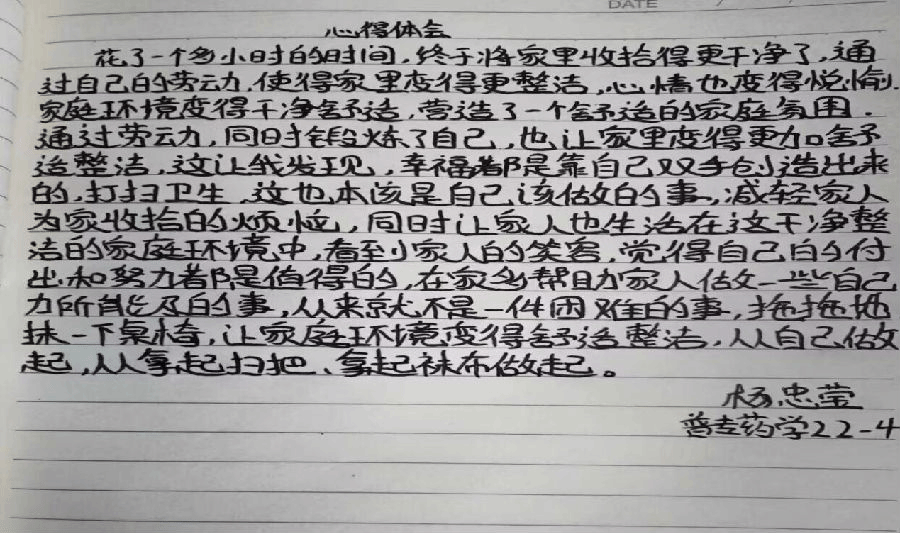 DATE
心得体会
花了一个多小时的时间,终于将家里收拾得更干净了,通
过自己的劳动,使得家里变得更整洁,心情也变得悦愉.
家庭环境变得干净舒适,营造了一个舒适的家庭氛围.
通过劳动,同时锻炼了自己,也让家里变得更加舒
适整洁,这让我发现,幸福都是靠自己双手创造出来
的,打扫卫生,这也本该是自己该做的事,减轻家人
为家收拾的烦恼,同时让家人也生活在这干净整
洁的家庭环境中,看到家人的笑容,觉得自己的付
出和努力都是值得的,在家多帮助家人做一些自己
力所能及的事,从来就不是一件困难的事,拖拖地
抹一下桌椅,让家庭环境变得舒适整洁,从自己做
起,从拿起扫把、拿起抹布做起。
杨忠莹
普专药学22-4